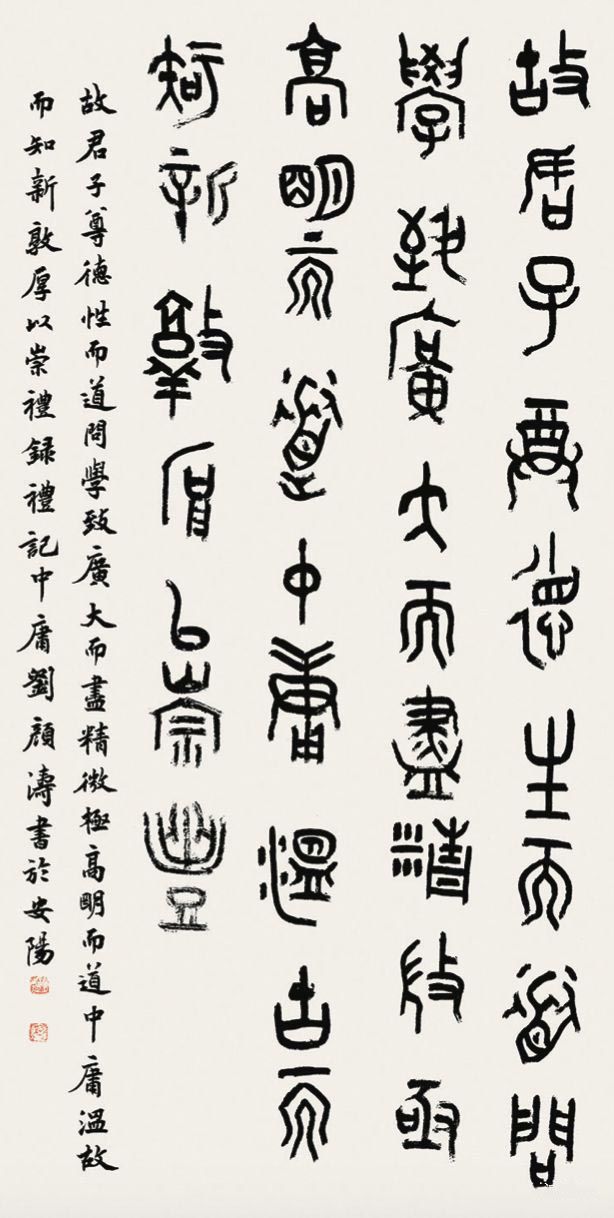 故君子尊德生而道問
學致廣大而盡精微亟
高明而道中庸溫古而
知新敦厚以崇豊
故君子尊德性而道問學致廣大而盡精微極高明而道中庸溫故
而知新敦厚以崇禮録禮記中庸劉顔濤書於安陽